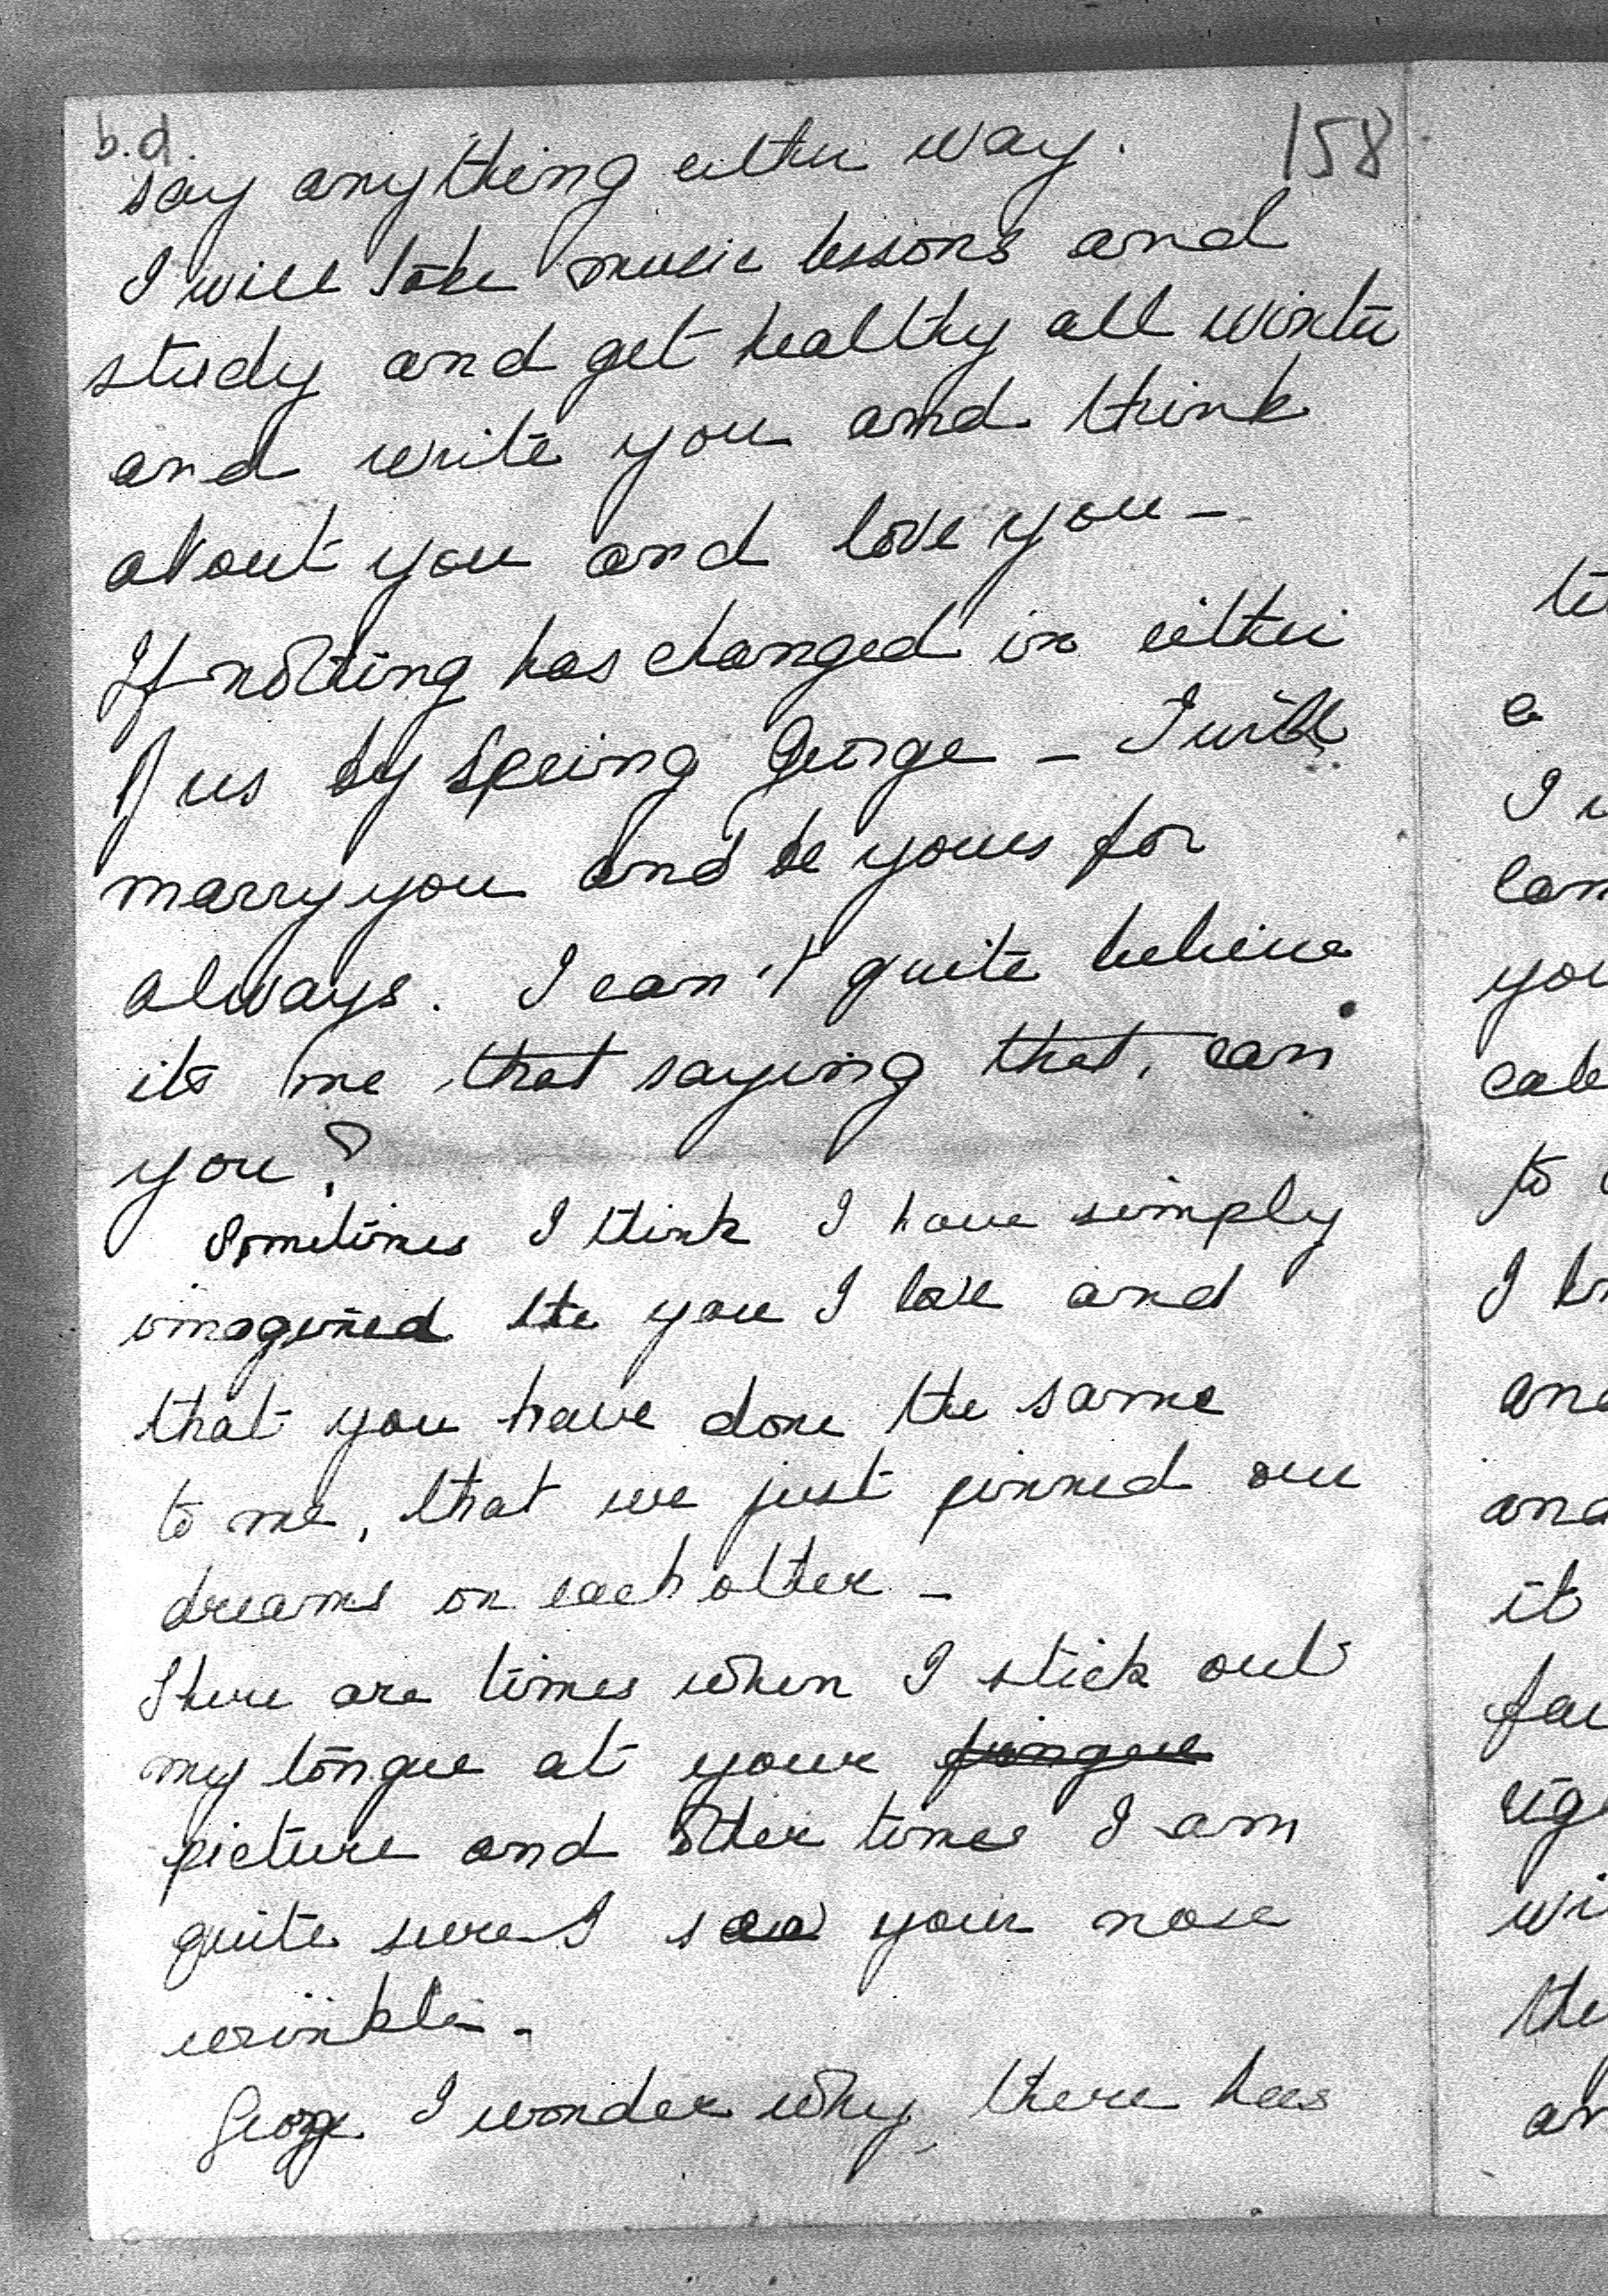 b.d.
158
say anything either way.
I will take music lessons and
study and get healthy all winter
and write you and think
about you and love you -
If nothing has changed in either
of us by Spring George - I will
marry you and be yours for
always. I can't quite believe
its me that saying that, can
you?
Sometimes I think I have simply
imagined the you I love and
that you have done the same
to me, that we just pinned our
dreams on each other -
There are times when I stick out
my tongue at your
picture and other times I am
quite sure I saw your nose
wrinkle -
George I wonder why there has
e
I
you
to
I
and
it